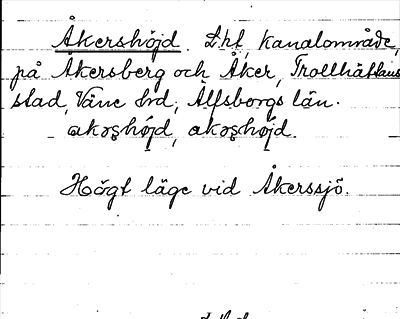 Åkershöjd. Lht, kanalområde,
på Åkersberg och Åker, Trollhättans
stad, Väne hd, Älfsborgs län.
akoshöjd, akoshöjd.
Högt läge vid Åkerssjö.